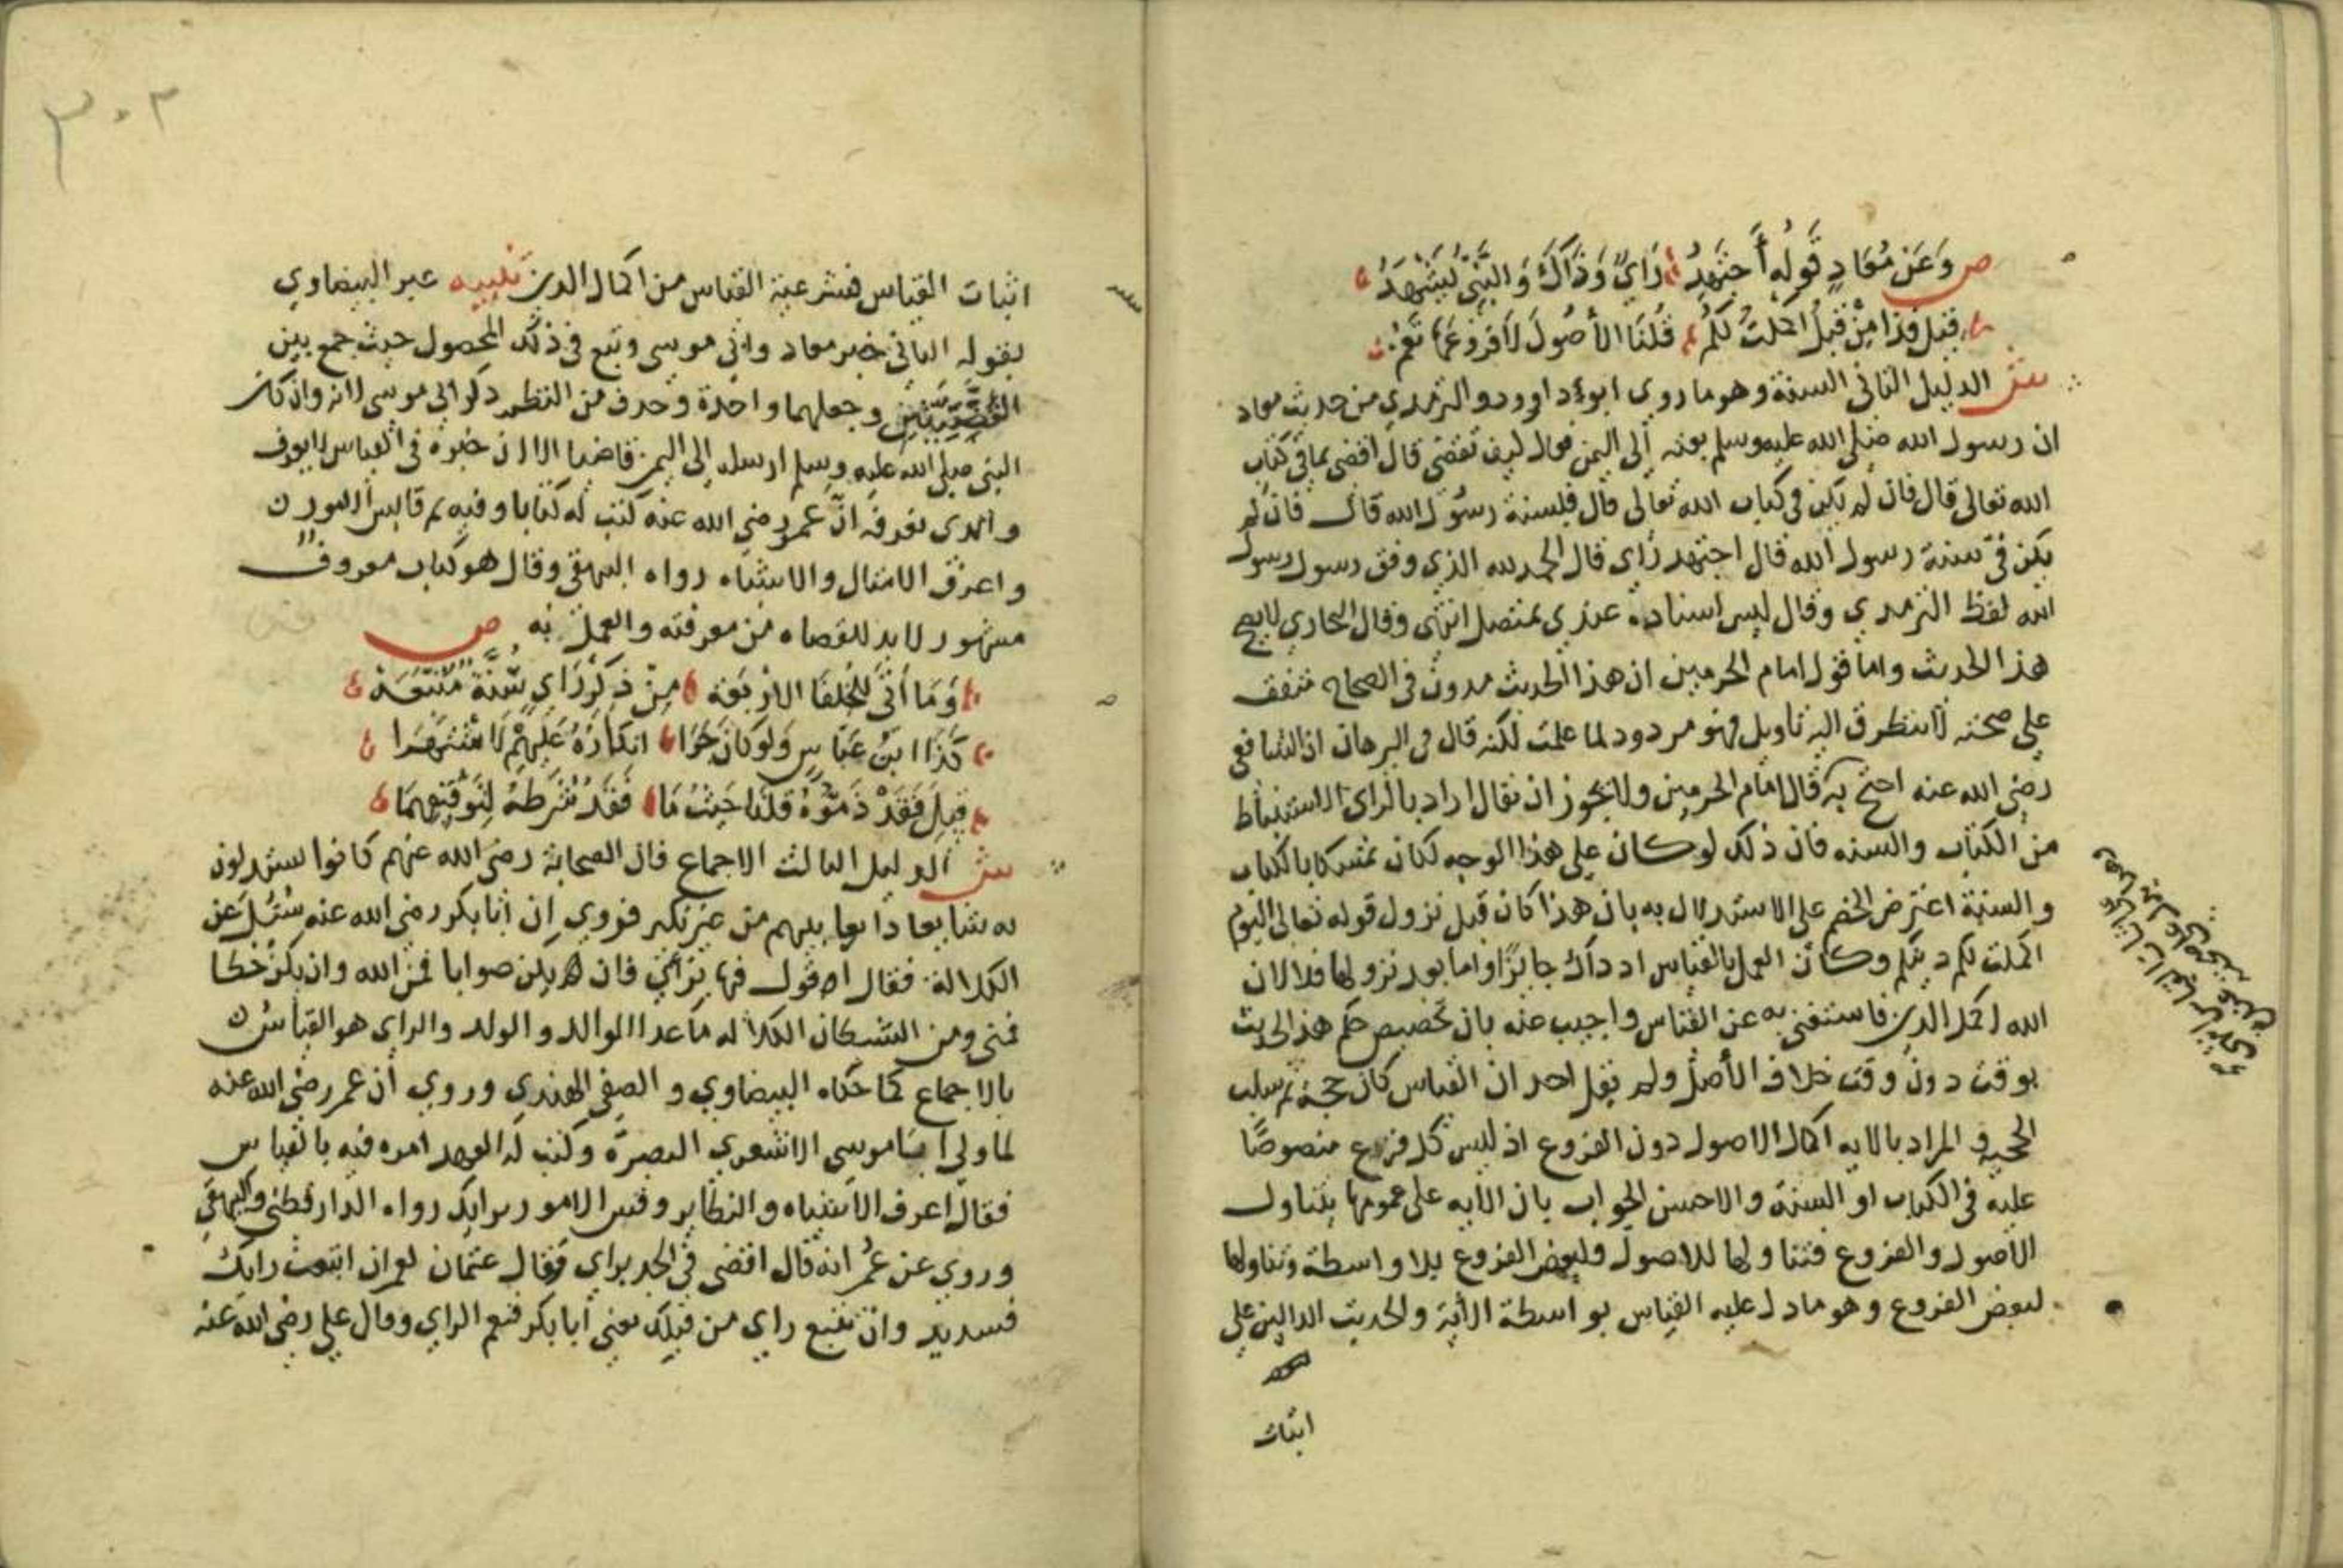 ص وَعَن مُعَاذٍ قَولُه أَجتَهِدُ رَايً وَذَاكَ وَالنَّبِيّ يَشهَدُ
قيل فذا مِنْ قَبلُ اكملتُ لكم قُلنَا الأصُولَ لَا فروع تعم
ش الدليل الثاني السنة وهو ما روى ابوداوود والترمذي من حديث معاذ
ان رسول الله صلى الله عليه وسلم بعثه إلى اليمن فقال كيف تقضي قال اقضي بما في كتاب
الله تعالى قال فان لم يكن في كتاب الله تعالى قال فبسنة رسول الله قال فان لم
يكن في سنة رسول الله قال اجتهد رأي قال الحمد لله الذي وفق رسول رسول
الله لفظ الترمذي وقال ليس اسناده عندي بمتصل انتهى وقال البخاري لا يصح
هذا الحديث واما قول امام الحرمين ان هذا الحديث مدون في الصحاح متفق
على صحته لا يتطرق اليه تأويل فهو مردود لما علمت لكنه قال في البرهان ان الشافعي
رضي الله عنه احتج به قال امام الحرمين ولا يجوز ان يقال اراد بالراي الاستنباط
من الكتاب والسنه فان ذلك لو كان على هذا الوجه لكان تمسكا بالكتاب
والسنة اعترض الخصم على الاستدلال به بان هذا كان قبل نزول قوله تعالى اليوم
اكملت لكم دينكم وكان العمل بالقياس اذ ذاك جائزا واما بعد نزولها فلا لان
الله اكمل الدين فاستغني به عن القياس واجيب عنه بان تخصيص حكم هذا الحديث
بوقت دون وقت خلاف الأصل ولم يقل احد ان القياس كان حجة ثم سلب
الحجية والمراد بالايه اكمال الاصول دون الفروع اذ ليس كل فرع منصوصًا
عليه في الكتاب او السنة والاحسن الجواب بان الايه على عمومها يتناول
الاصول والفروع فتناولها للاصول ولبعض الفروع بلا واسطة وتناولها
لبعض الفروع وهو ما دل عليه القياس بواسطة الأية والحديث الدالين على
اثبات
٣٠٢
اثبات القياس فشرعية القياس من اكمال الدين تنبيه عبر البيضاوي
بقوله الثاني خبر معاذ وابي موسى وتبع في ذلك المحصول حيث جمع بين
القصتين وجعلهما واحدة وحذف من النظم ذكر ابي موسى لانه وان كان
النبي صلى الله عليه وسلم ارسله إلى اليمن قاضيا الا ان خبره في القياس لا يعرف
والذي نعرفه أن عمر رضي الله عنه كتب له كتابا وفيه ثم قايس الامور
واعرف الامثال والاشباه رواه البيهقي وقال هو كتاب معروف
مشهور لا بد للقضاه من معرفته والعمل به ص
وَمَا أتى للخلفا الاربعه مِنْ ذكر رَاي سُنَّة مُتبَّعَة
كَذَا ابنُ عَبّاسٍ وَلَو كَانَ جَرَا انكَارُهُ عَلَيهِم لَاشتَهَرا
قِيلَ فَقَدْ ذَمّوهُ قلنَا حَيثُ مَا فَقدُ شَرطِه
ش الدليل الثالث الاجماع فان الصحابة رضي الله عنهم كانوا يستدلون
به شايعا ذايعا بينهم من غير نكير فروي ان أبا بكر رضي الله عنه سُئل عن
الكلالة فقال اقول فيها برأيي فان يكن صوابا فمن الله وان يكن خطا
فمني ومن الشيطان الكلاله ما عدا الوالد والولد والراي هو القياس
بالاجماع كما حكاه البيضاوي والصفي الهندي وروي أن عمر رضي الله عنه
لما ولى أبا موسى الاشعري البصرة وكتب له العهد امره فيه بالقياس
فقال اعرف الاشباه والنظاير وقس الامور برايك رواه الدارقطني والبيهقي
وروي عن عمر انه قال اقضي في الجد براي فقال عثمان لعمر ان اتبعت رايك
فسديد وان تتبع راي من قبلك يعني أبا بكر فنعم الراي وقال علي رضي الله عنه